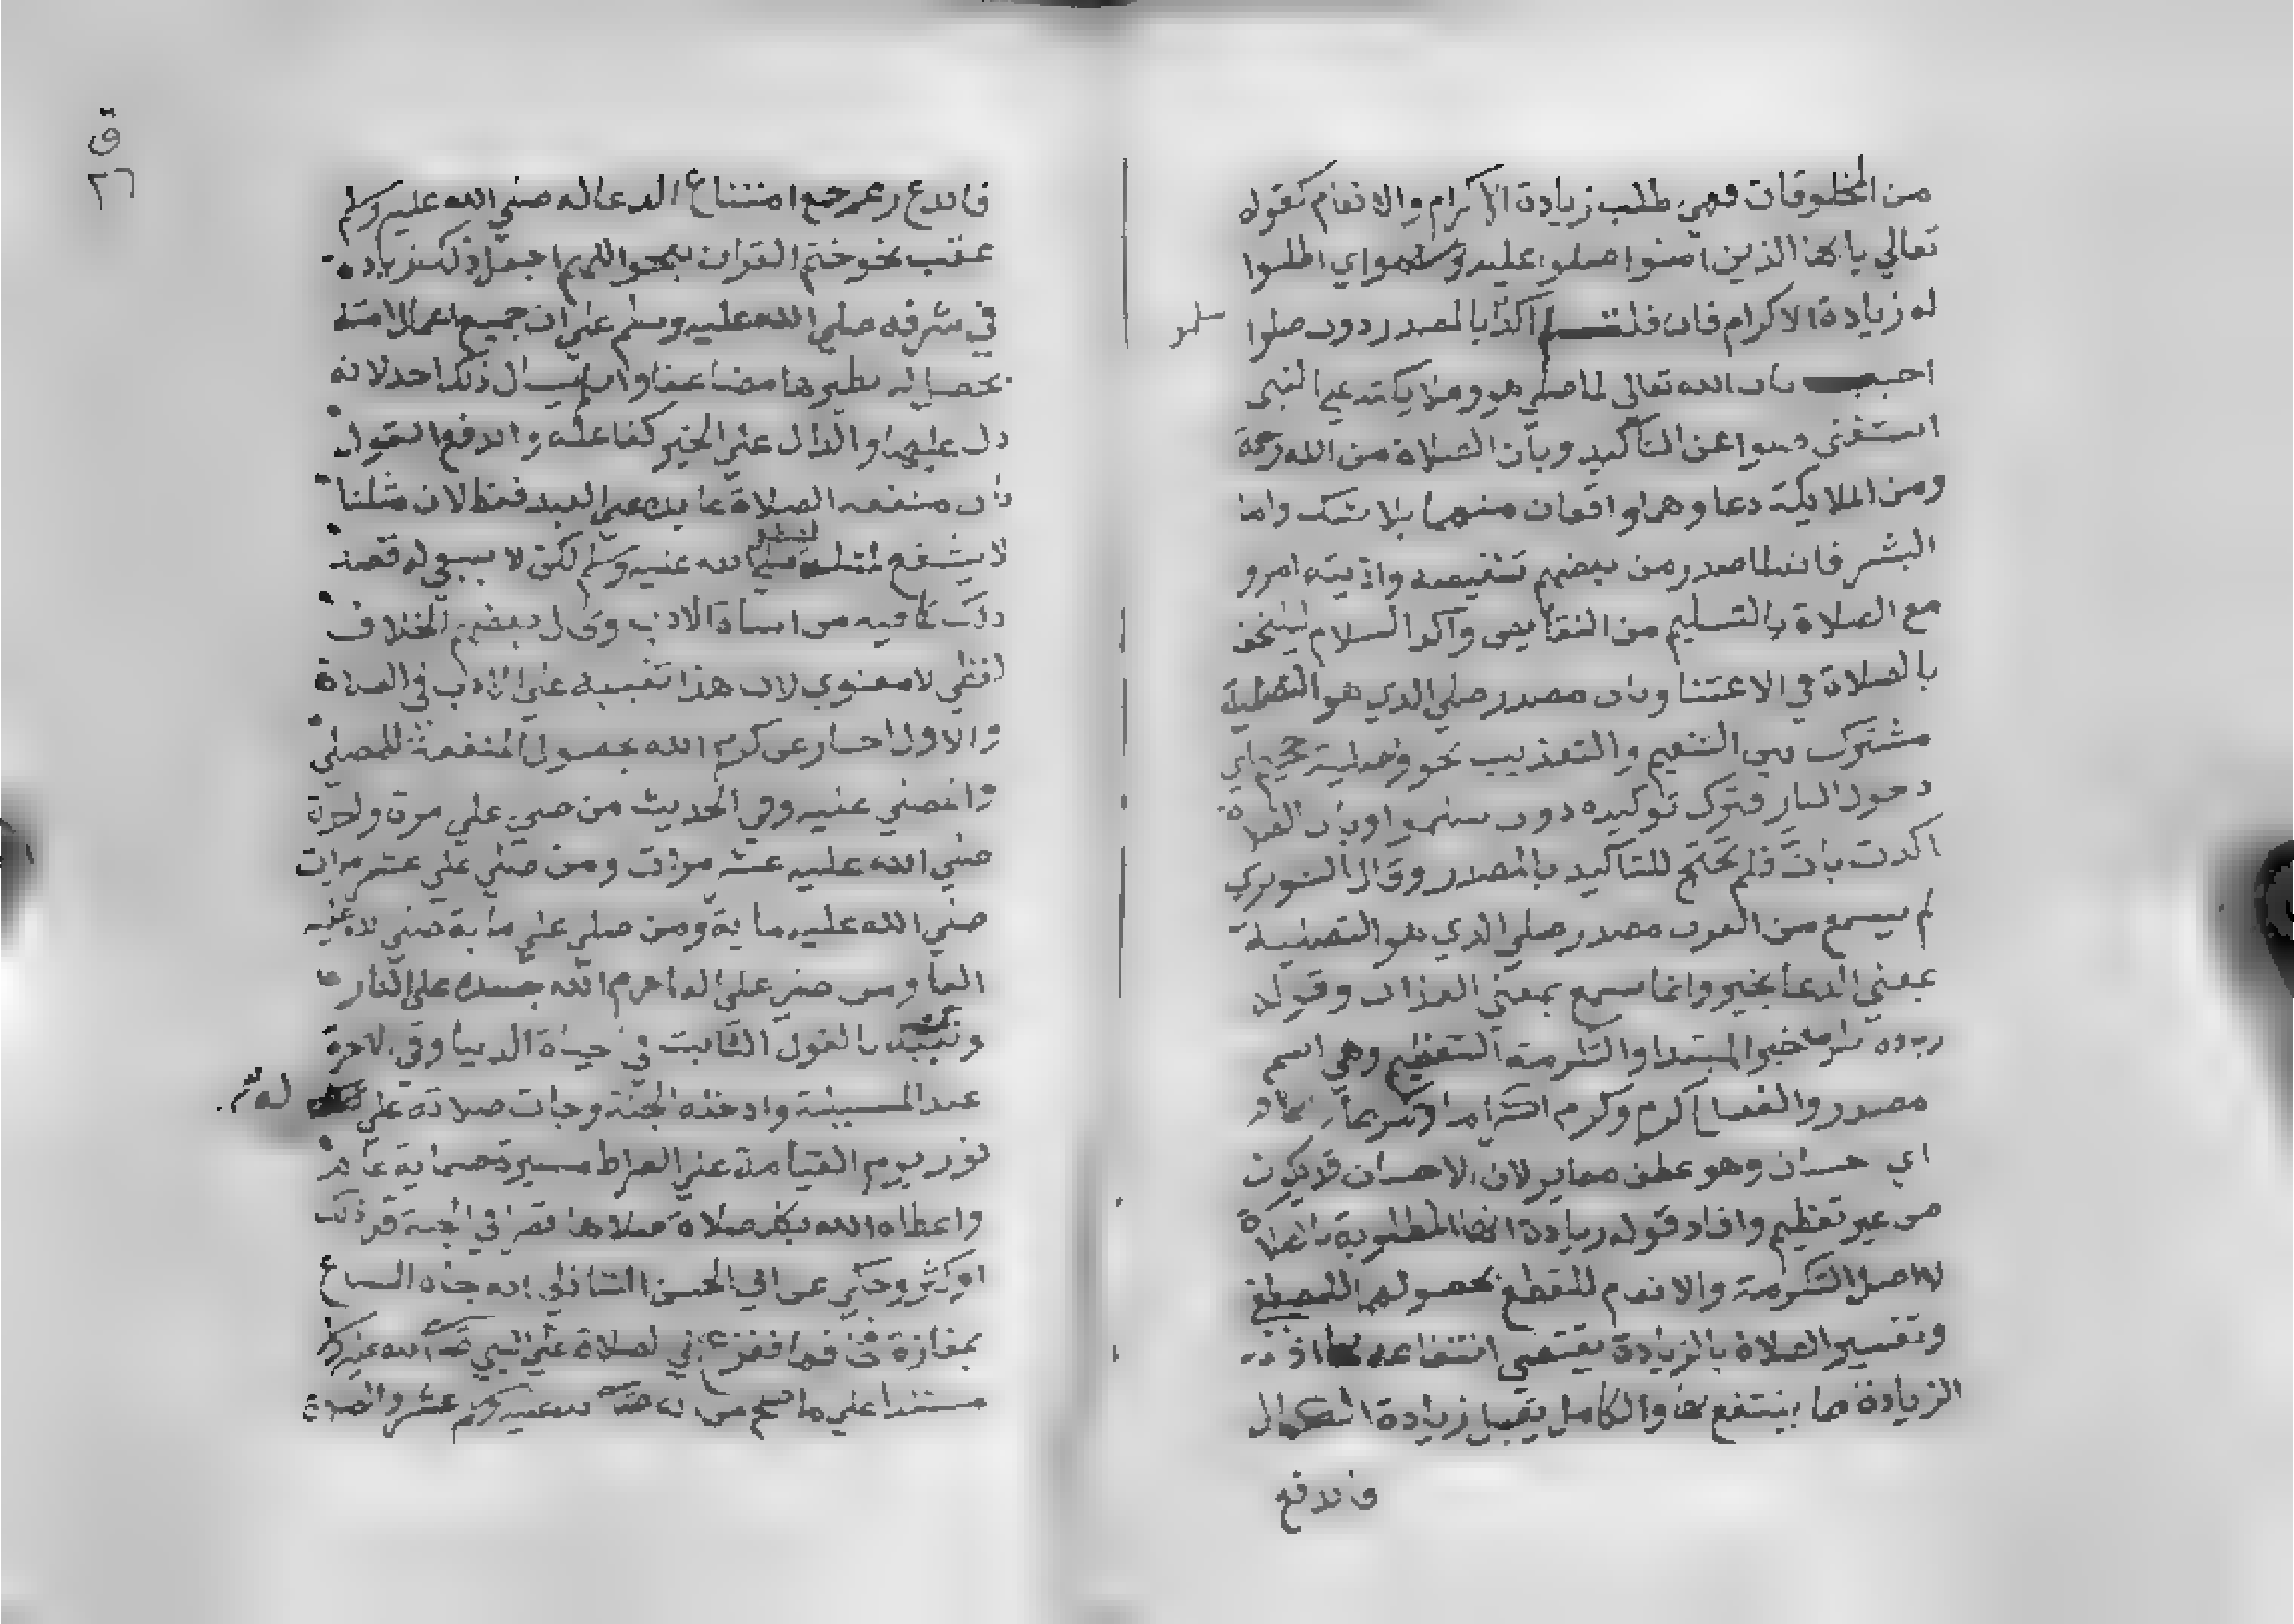 من المخلوقات فهي طلب زيادة الاكرام والانعام كقوله
تعالي يا ايها الذين امنوا صلوا عليه وسلموا اي اطلبوا
له زيادة الاكرام فان قلت اكد بالمصدر دون صلوا
اجيب بان الله تعالى لما صلي هو وملايكته علي النبي
استغني عن التأكيد وبأن الصلاة من الله رحمة
ومن الملايكة دعا وهما واقعان منهما بلا شك واما
البشر فانه لما صدر من بعضهم تنقيصه واذيته امروا
مع الصلاة بالتسليم من النقايص واكد السلام
بالصلاة في الاعتنا وبان مصدر صلي الذي هو التصلية
مشترك بين التنعيم والتعذيب نحو وتصلية جحيم اي
دخول النار فترك توكيده دون سلموا وبان الصلاة
اكدت بانّ فلم تحتج للتاكيد بالمصدر وقال النويري
لم يسمع من العرب مصدر صلي الذي هو التصلية
بمعني الدعا بخير وانما سمع بمعني العذاب وقوله
زيادة تكرمة خبر المبتدا والتكرمة التعظيم وهي اسم
مصدر والفعل اكرم وكرم اكراما وتكريما
اي حسان وهو عطف مغاير لان الاحسان قد يكون
من غير تعظيم وافاد قوله زيادة انها المطلوبة بالصلاة
لا اصل التكرمة والانعام للقطع بحصولهما للمصطفي
وتفسير الصلاة بالزيادة يقتضي انتفاعه بها اذ
الزيادة مما ينتفع بها والكامل يقبل زيادة الكمال
فاندفع
سلموا
ق
٢٦
فاندفع زعم جمع امتناع الدعا له صلي الله عليه وسلم
عقب نحو ختم القران بنحو اللهم اجعل ذلك زيادة
في شرفه صلي الله عليه وسلم علي ان جميع اعمال امته
يحصل له نظيرها مضاعفا وان لم يسال ذلك احد لانه
دل عليها والدال علي الخير كفاعله واندفع القول
بان منفعة الصلاة عايدة علي العبد فقط لان مثلنا
لا يشفع لمثله صلي الله عليه وسلم لكن لا ينبغي له قصد
ذلك لما فيه من اساة الادب وقال بعضهم الخلاف
لفظي لا معنوي لان هذا تنبيه علي الادب في الصلاة
والاول اخبار عن كرم الله بحصول المنفعة للمصلي
والمصلي عليه وفي الحديث من صلي علي مرة واحدة
صلي الله عليه عشر مرات ومن صلي علي عشر مرات
صلي الله عليه ماية ومن صلي علي ماية صلي الله عليه
الفا ومن صلي علي الفا حرم الله جسده علي النار
وثبته بالقول الثابت في حياة الدنيا وفي الاخرة
عند المسيلة وادخله الجنة وجات صلاته علي
له
نور يوم القيامة علي الصراط مسيرة خمسماية عام
واعطاه الله بكل صلاة صلاها قصرا في الجنة قل ذلك
او كثر وحكي عن ابي الحسن الشاذلي انه جاه السباع
بمفازة فخافها ففزع الي الصلاة علي النبي صلي الله عليه وسلم
مستندا علي ما صح من انه صلي الله عليه وسلم عشر والصلاة